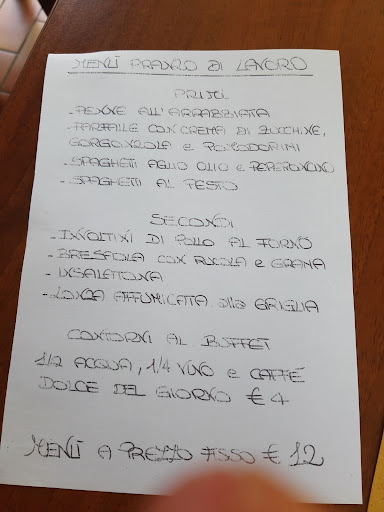 MENÙ PRANZO DI LAVORO
PRIMI
- PENNE ALL'ARRABBIATA
- FARFALLE CON CREMA DI ZUCCHINE,
GORGONZOLA E POMODORINI
- SPAGHETTI AGLIO OLIO E PEPERONCINO
- SPAGHETTI AL PESTO
SECONDI
- INVOLTINI DI POLLO AL FORNO
- BRESAOLA CON RUCOLA E GRANA
- INSALATONA
- LONZA AFFUMICATA alla GRIGLIA
CONTORNI AL BUFFET
1/2 ACQUA, 1/4 VINO E CAFFÈ
DOLCE DEL GIORNO € 4
MENÙ A PREZZO FISSO € 12